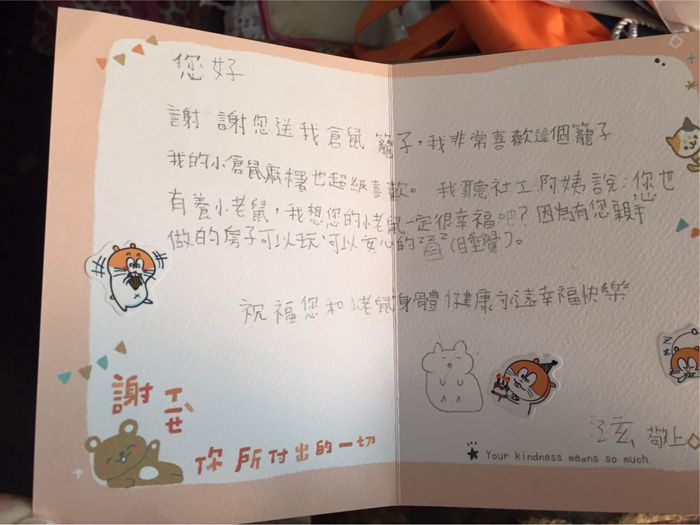 您好
謝謝您送我倉鼠籠子，我非常喜歡這個籠子
我的小倉鼠麻糬也超級喜歡。我聽社工阿姨說：您也
有養小老鼠，我想您的小老鼠一定很幸福吧？因為有您親手
做的房子可以玩，可以安心的(睡覺)。
祝福您和小老鼠身體健康永遠幸福快樂
泫 敬上
謝ㄒㄧㄝˋ
你所付出的一切
Your kindness means so much